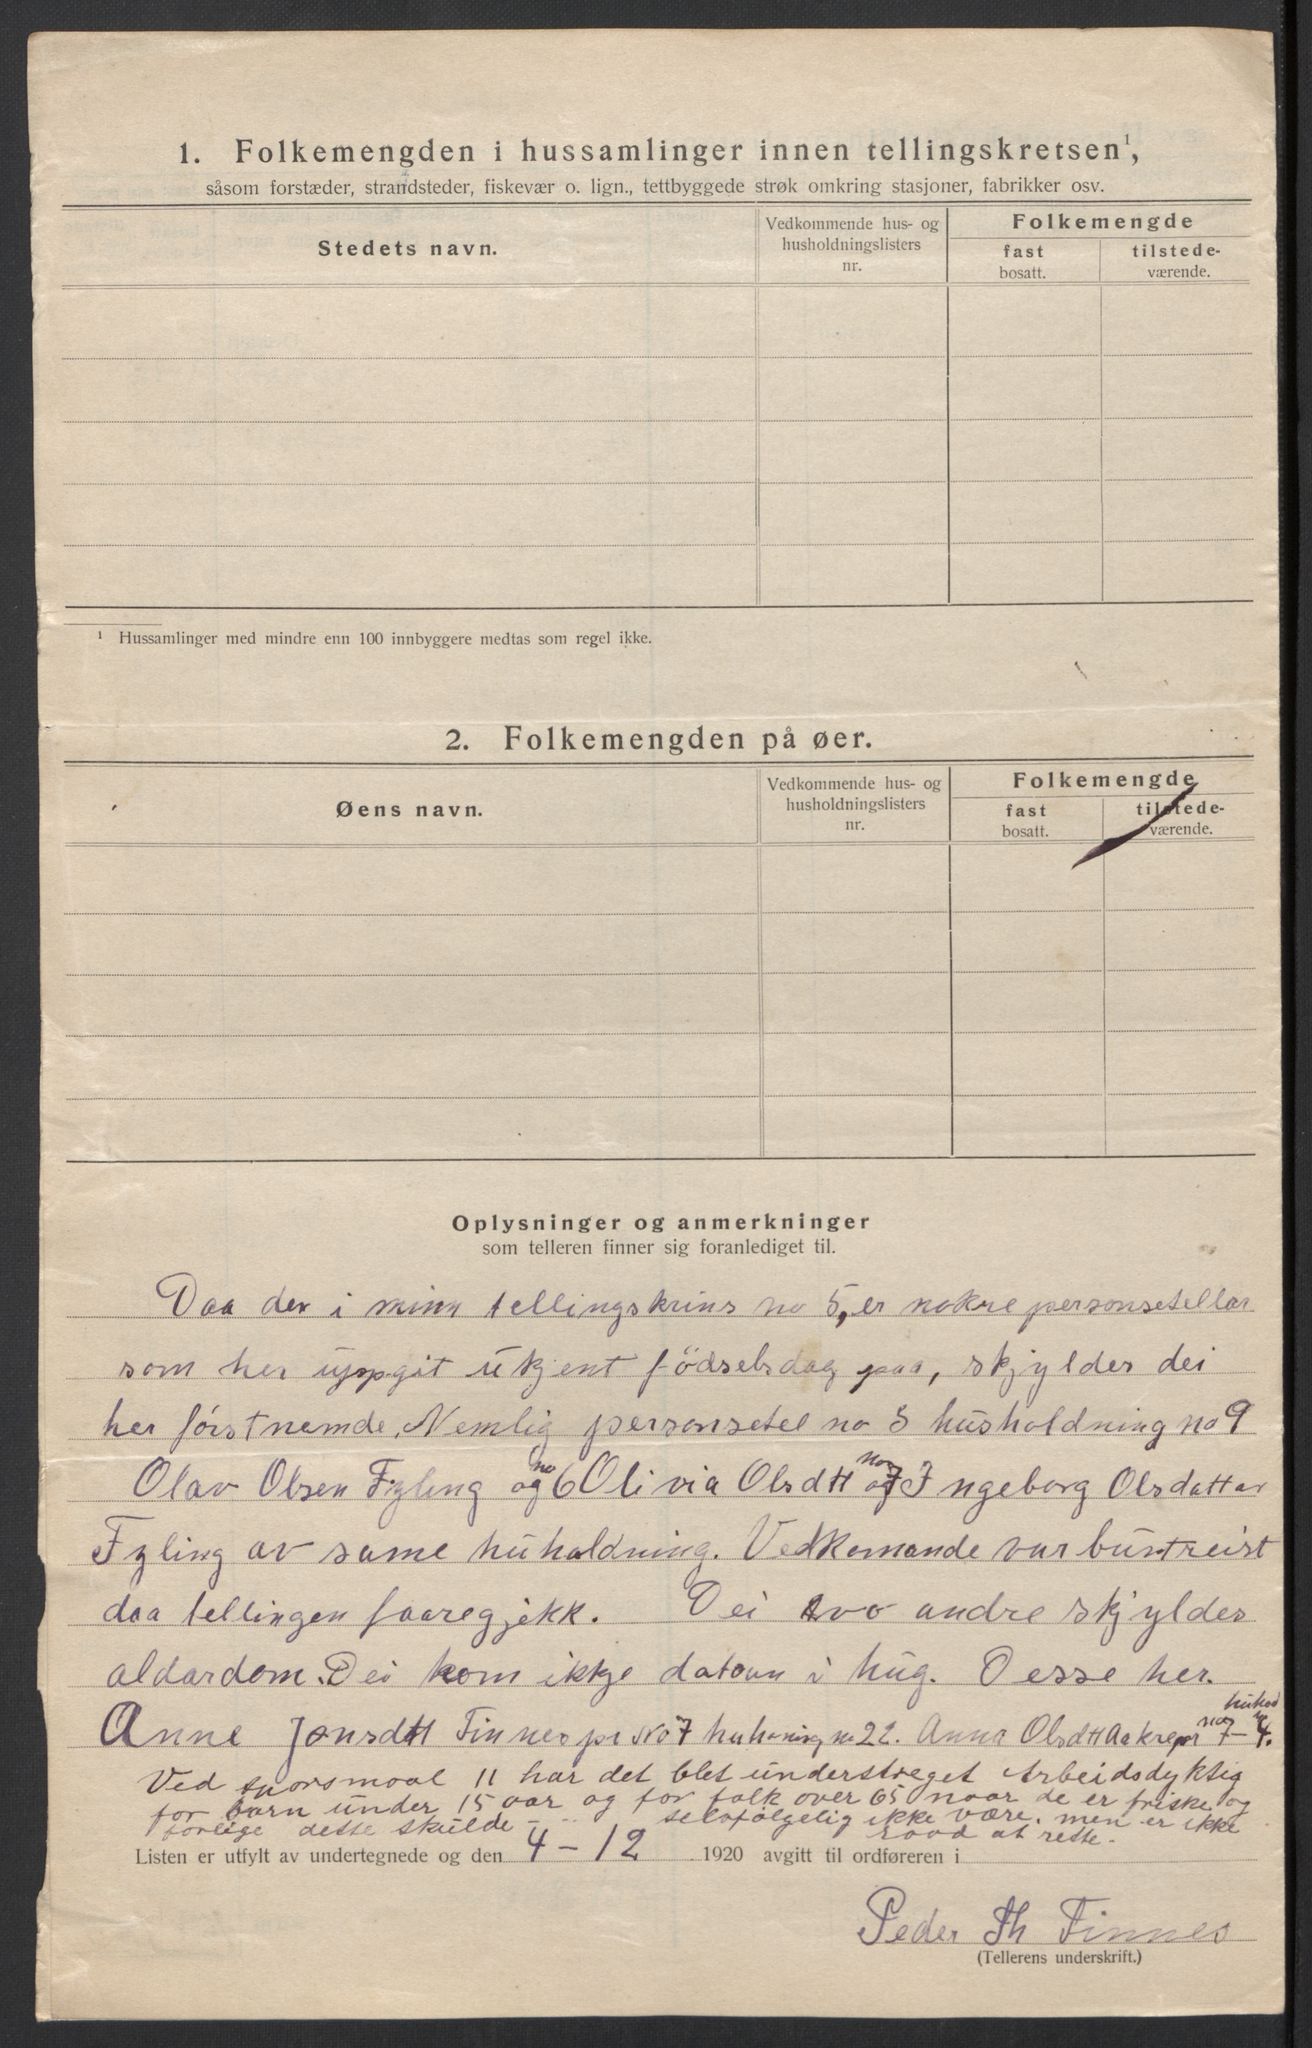 1. Folkemengden i hussamlinger innen tellingskretsen¹,
såsom forstæder, strandsteder, fiskevær o. lign., tettbyggede strøk omkring stasjoner, fabrikker osv.
Stedets navn.
Vedkommende hus- og husholdningslisters nr.
Folkemengde
fast bosatt.
tilstedeværende.
¹ Hussamlinger med mindre enn 100 innbyggere medtas som regel ikke.
2. Folkemengden på øer.
Øens navn.
Vedkommende hus- og husholdningslisters nr.
Folkemengde
fast bosatt.
tilstedeværende.
Oplysninger og anmerkninger
som telleren finner sig foranlediget til.
Daa der i minn tellingskrins no 5, er nokre personsetellar
som her uppgit ukjent födselsdag paa, skyldes dei
her förstnemde. Nemlig personsetel no 5 husholdning no 9
Olav Olsen Fyling og no 6 Olivia Olsdtt og no 7 Ingeborg Olsdattar
Fyling av same huholdning. Vedkomande var burtreist
daa tellingen faaregjekk. Dei tvo andre skyldes
aldardom. Dei kom ikkje datoan i hug. Desse her.
Anne Jonsdtt Finnes pr No 7 huhaning no 22. Anna Olsdtt Aakre pr no 7 – huhod 4.
Ved spørsmaal 11 har det blet understreget Arbeidsdyktig
for barn under 15 aar og for folk over 65 naar de er friske og
førlige dette skulde - selvfølgelig ikke være. men er ikke
raad at rette.
Listen er utfylt av undertegnede og den 4 – 12 1920 avgitt til ordføreren i
Peder Th Finnes
(Tellerens underskrift.)